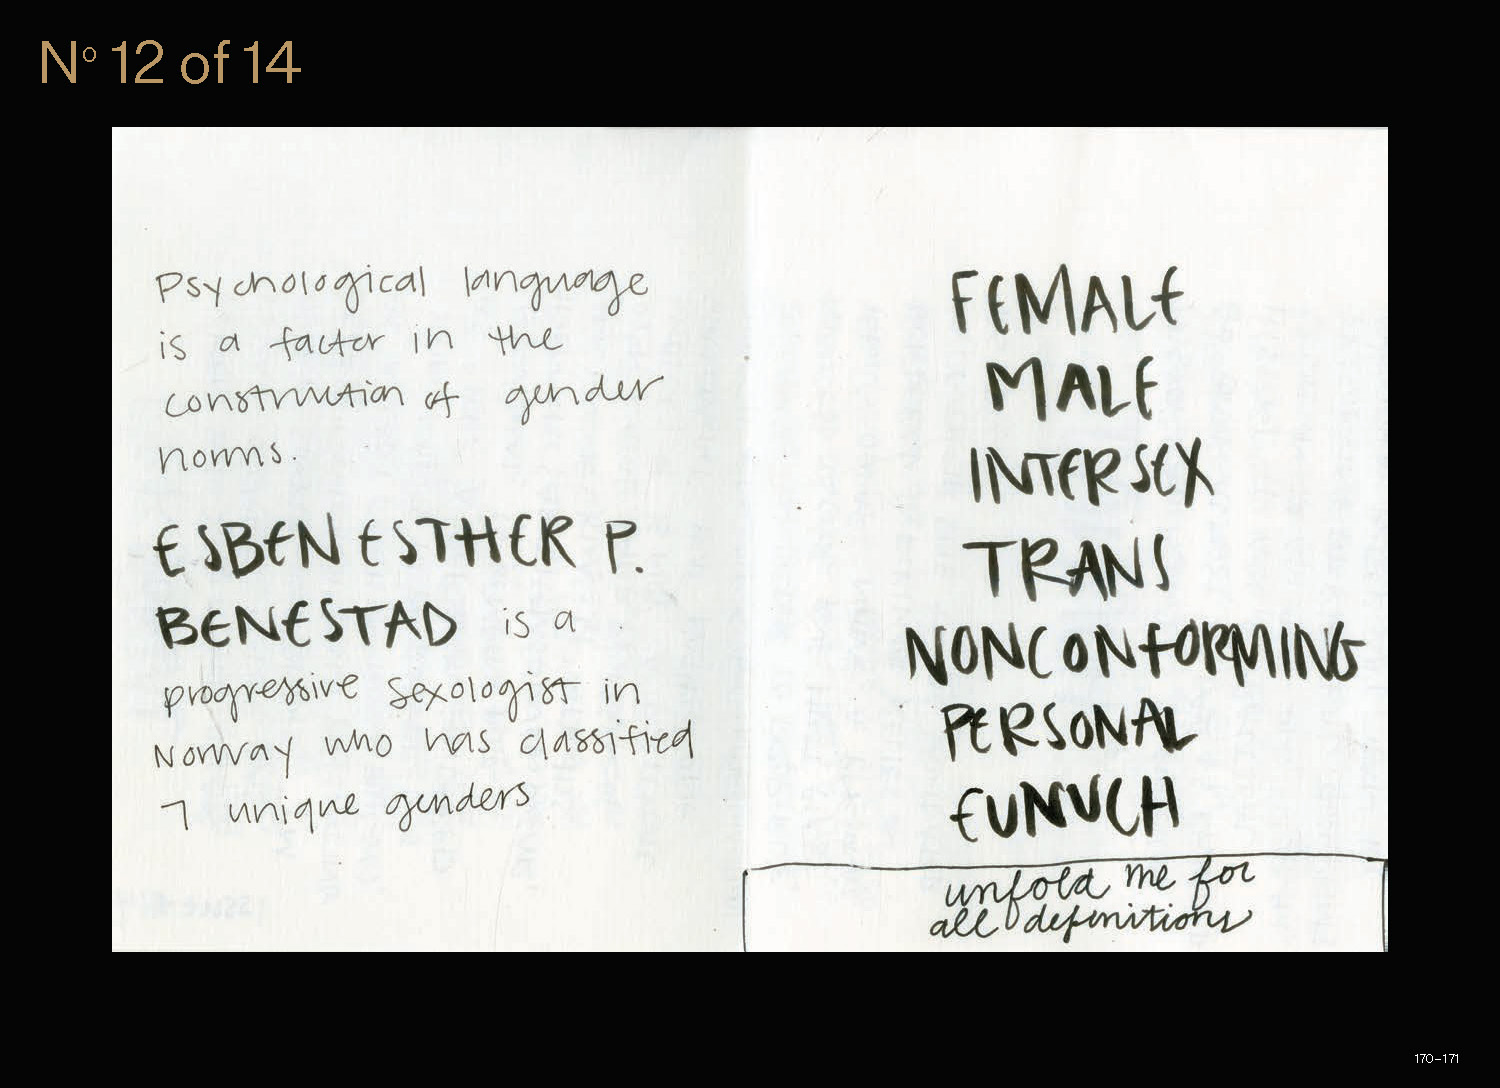 Nº 12 of 14
Psychological language
is a factor in the
construction of gender
norms.
ESBEN ESTHER P.
BENESTAD is a
progressive sexologist in
Norway who has classified
7 unique genders
FEMALE
MALE
INTERSEX
TRANS
NONCONFORMING
PERSONAL
EUNUCH
unfold me for
all definitions
170–171